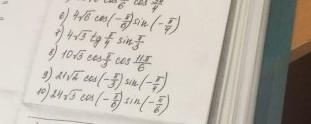 6) 4√6 cos(-π/6) sin(-π/4)
7) 4√3 tg π/4 sin π/3
8) 10√3 cos π/3 cos 11π/6
9) 21√2 cos(-π/3) sin(-π/4)
10) 24√3 cos(-π/6) sin(-π/6)